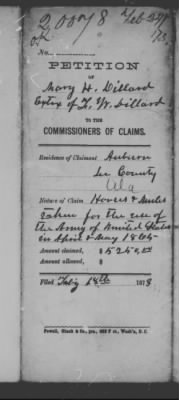 20078 Feb 24
No.
PETITION
OF
Mary H. Dillard
Extx of F. W. Dillard
TO THE
COMMISSIONERS OF CLAIMS.
Residence of Claimant Auburn
Lee County
Ala
Nature of Claim Horses & Mules
taken for the use of
the Army of United States
in April & May 1865
Amount claimed, $5250.00
Amount allowed, $
Filed Feb'y 18th 1873